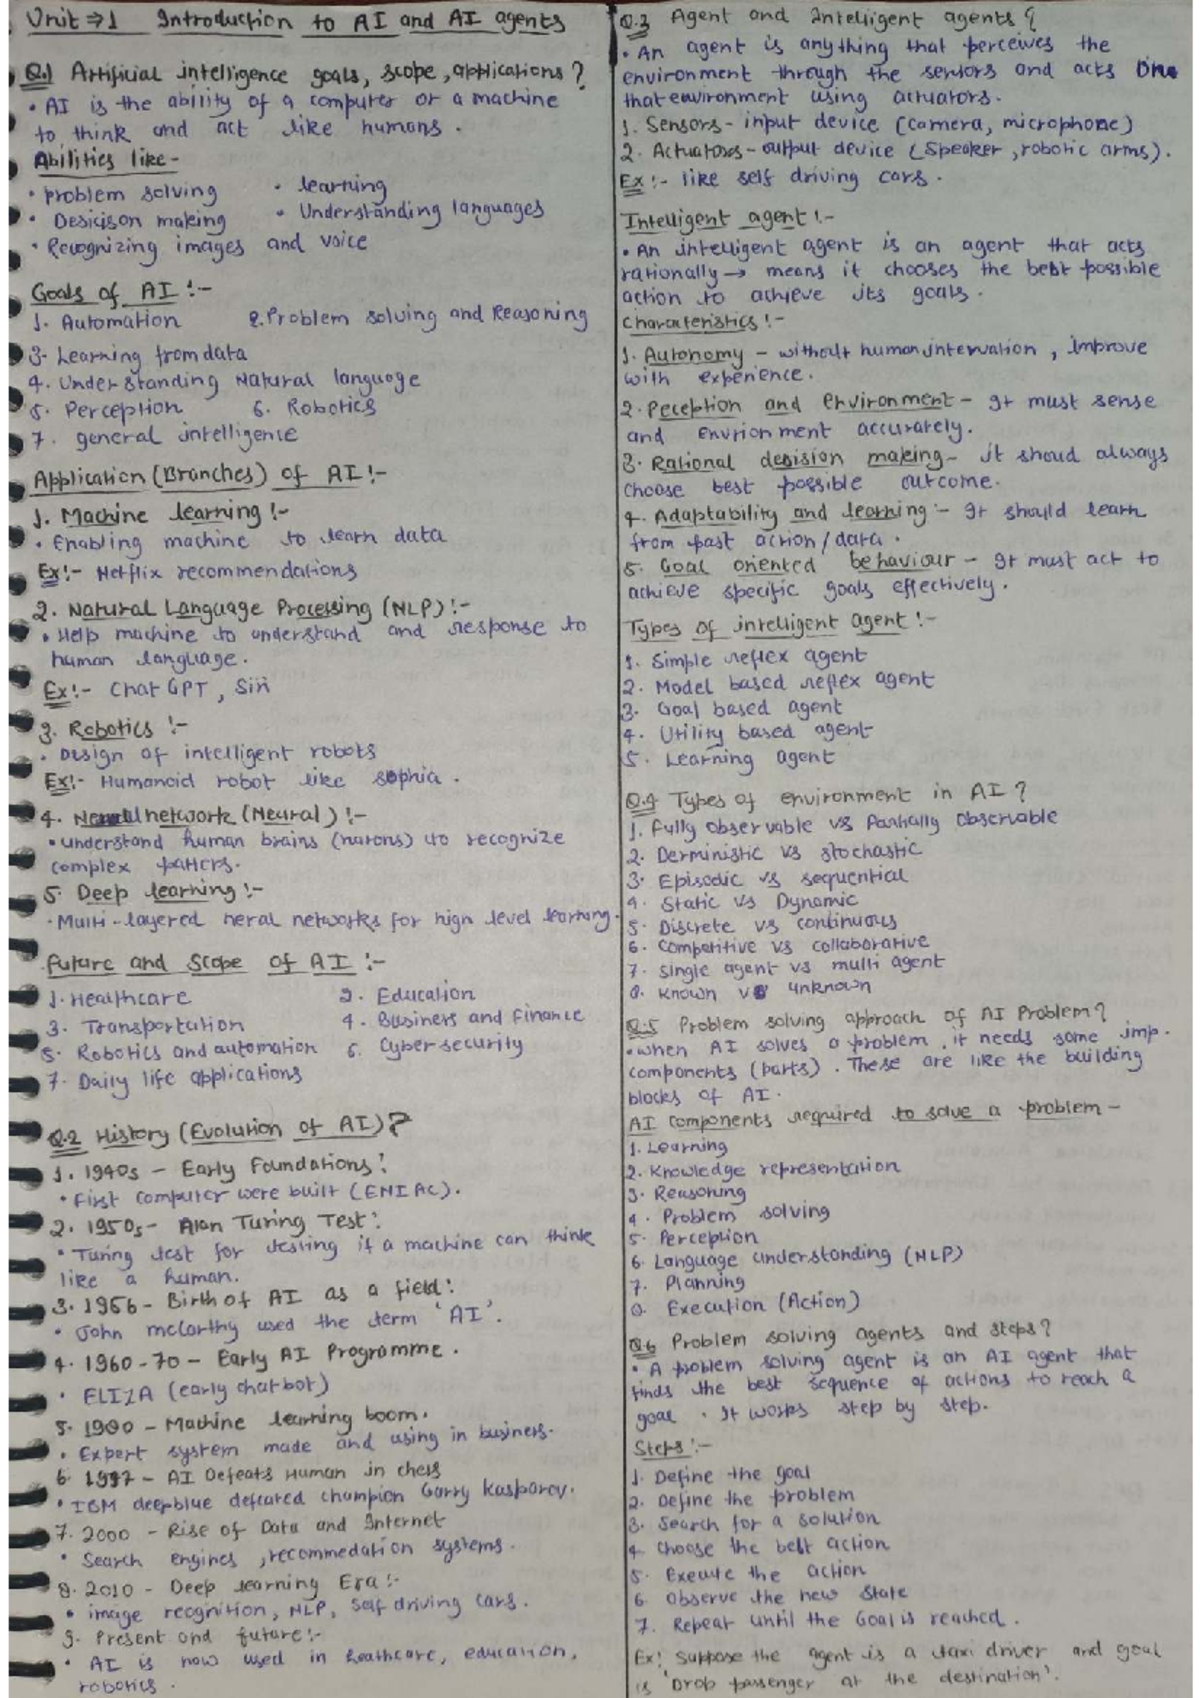 Unit ⇒ 1 Introduction to AI and AI agents
Q.1 Artificial intelligence goals, scope, applications ?
• AI is the ability of a computer or a machine
to think and act like humans .
Abilities like -
• problem solving • learning
• Desicison making • Understanding languages
• Recognizing images and voice
Goals of AI :-
1. Automation 2. Problem solving and Reasoning
3. Learning from data
4. Understanding Natural language
5. Perception 6. Robotics
7. general intelligence
Application (Branches) of AI :-
1. Machine learning :-
• Enabling machine to learn data
Ex :- Netflix recommendations
2. Natural Language Processing (NLP) :-
• Help machine to understand and response to
human language .
Ex :- Chat GPT , Siri
3. Robotics :-
• Design of intelligent robots
Ex :- Humanoid robot like sophia .
4. network (Neural) :-
• understand human brains (narons) to recognize
complex patters.
5. Deep learning :-
• Multi - layered neral networks for high level learning.
Future and Scope of AI :-
1. Healthcare 2. Education
3. Transportation 4. Business and Finance
5. Robotics and automation 6. Cyber security
7. Daily life applications
Q.2 History (Evolution of AI) ?
1. 1940s - Early Foundations :
• First computer were built (ENIAC).
2. 1950s - Alan Turing Test :
• Turing test for testing if a machine can think
like a human.
3. 1956 - Birth of AI as a field :
• John mccarthy used the term 'AI'.
4. 1960 - 70 - Early AI Programme .
• ELIZA (early chatbot)
5. 1980 - Machine learning boom .
• Expert system made and using in business.
6. 1997 - AI Defeats Human in chess
• IBM deepblue defeated champion Garry Kasparov.
7. 2000 - Rise of Data and Internet
• Search engines , recommedation systems .
8. 2010 - Deep learning Era :-
• image recgnition, NLP, Self driving cars .
9. Present and future :-
• AI is now used in healthcare, education,
robotics .
Q.3 Agent and Intelligent agents ?
• An agent is anything that perceives the
environment through the sensors and acts
that environment using actuators.
1. Sensors - input device (Camera, microphone)
2. Actuators - output device (Speaker , robotic arms).
Ex :- like self driving cars .
Intelligent agent :-
• An intelligent agent is an agent that acts
rationally → means it chooses the best possible
action to achieve its goals .
Characteristics :-
1. Autonomy - without human intervation , improve
with experience.
2. Peception and environment - It must sense
and Envrionment accurately.
3. Rational desision making - it shoud always
choose best possible outcome.
4. Adaptability and learning :- It should learn
from past action / data .
5. Goal oriented behaviour - It must act to
achieve specific goals effectively .
Types of intelligent agent :-
1. Simple reflex agent
2. Model based reflex agent
3. Goal based agent
4. Utility based agent
5. Learning agent
Q.4 Types of environment in AI ?
1. Fully Observable vs Partially Observable
2. Derministic vs stochastic
3. Episodic vs sequential
4. Static vs Dynamic
5. Discrete vs continuous
6. Competitive vs collaborative
7. single agent vs multi agent
8. Known vs unknown
Q.5 Problem solving approach of AI Problem ?
• when AI solves a problem , it needs some imp.
components (parts) . These are like the building
blocks of AI .
AI components required to solve a problem -
1. Learning
2. Knowledge representation
3. Reasoning
4. Problem solving
5. Perception
6. Language understanding (NLP)
7. Planning
8. Execution (Action)
Q.6 Problem solving agents and steps ?
• A problem solving agent is an AI agent that
finds the best sequence of actions to reach a
goal . It works step by step.
Steps :-
1. Define the goal
2. Define the problem
3. Search for a solution
4. Choose the best action
5. Execute the action
6. Observe the new state
7. Repeat until the Goal is reached .
Ex : Suppose the agent is a taxi driver and goal
is 'Drop passenger at the destination'.